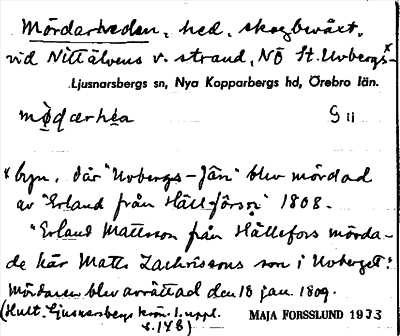 Mördarheden, hed, skogbeväxt,
vid Nittälvens v. strand, NÖ St. Uvbergs-ˣ
Ljusnarsbergs sn, Nya Kopparbergs hd, Örebro län.
G 11
ˣ byn, där "Uvbergs-Jän" blev mördad
av "Erland från Hällförsn" 1808.
"Erland Mattsson från Hällefors mörda-
de här Matts Zachrissons son i Uvberget."
Mördaren blev avrättad den 18 jan. 1809.
(Hult. Ljusnarsbergs krön. 1. uppl.
s. 148)
MAJA FORSSLUND 1933